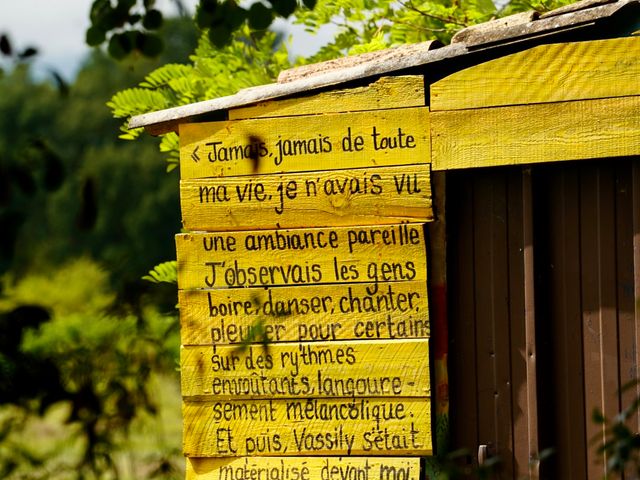 « Jamais, jamais de toute
ma vie, je n'avais vu
une ambiance pareille
J'observais les gens
boire, danser, chanter,
pleurer pour certains
sur des rythmes
envoûtants, langoure-
sement mélancolique.
Et puis, Vassily s'était
matérialisé devant moi